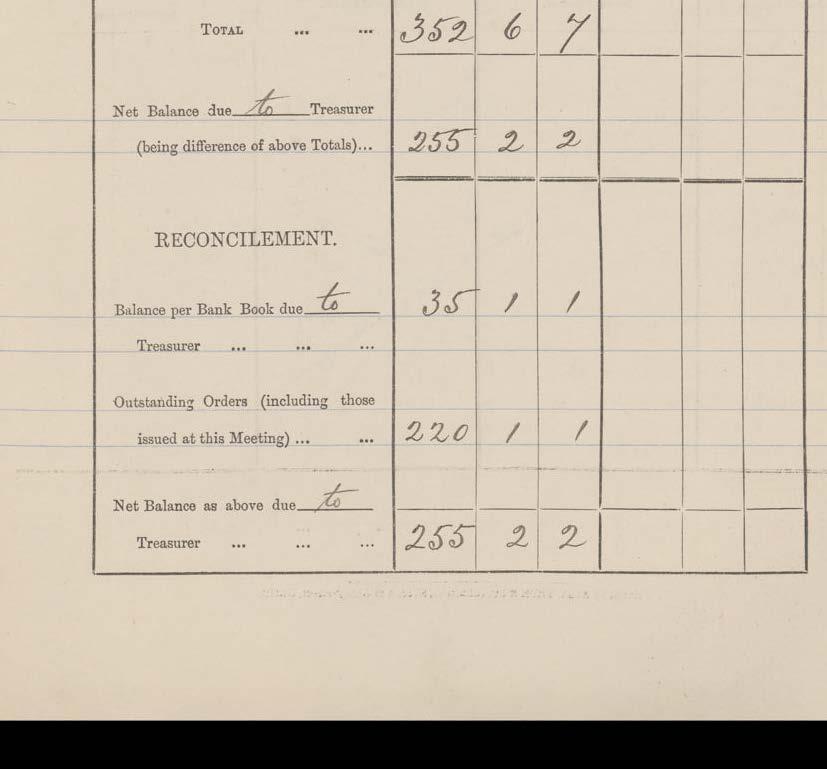 TOTAL ... ... 352 6 7
Net Balance due to Treasurer
(being difference of above Totals)... 255 2 2
RECONCILEMENT.
Balance per Bank Book due to 35 1 1
Treasurer ... ... ...
Outstanding Orders (including those
issued at this Meeting) ... ... 220 1 1
Net Balance as above due to
Treasurer ... ... ... 255 2 2